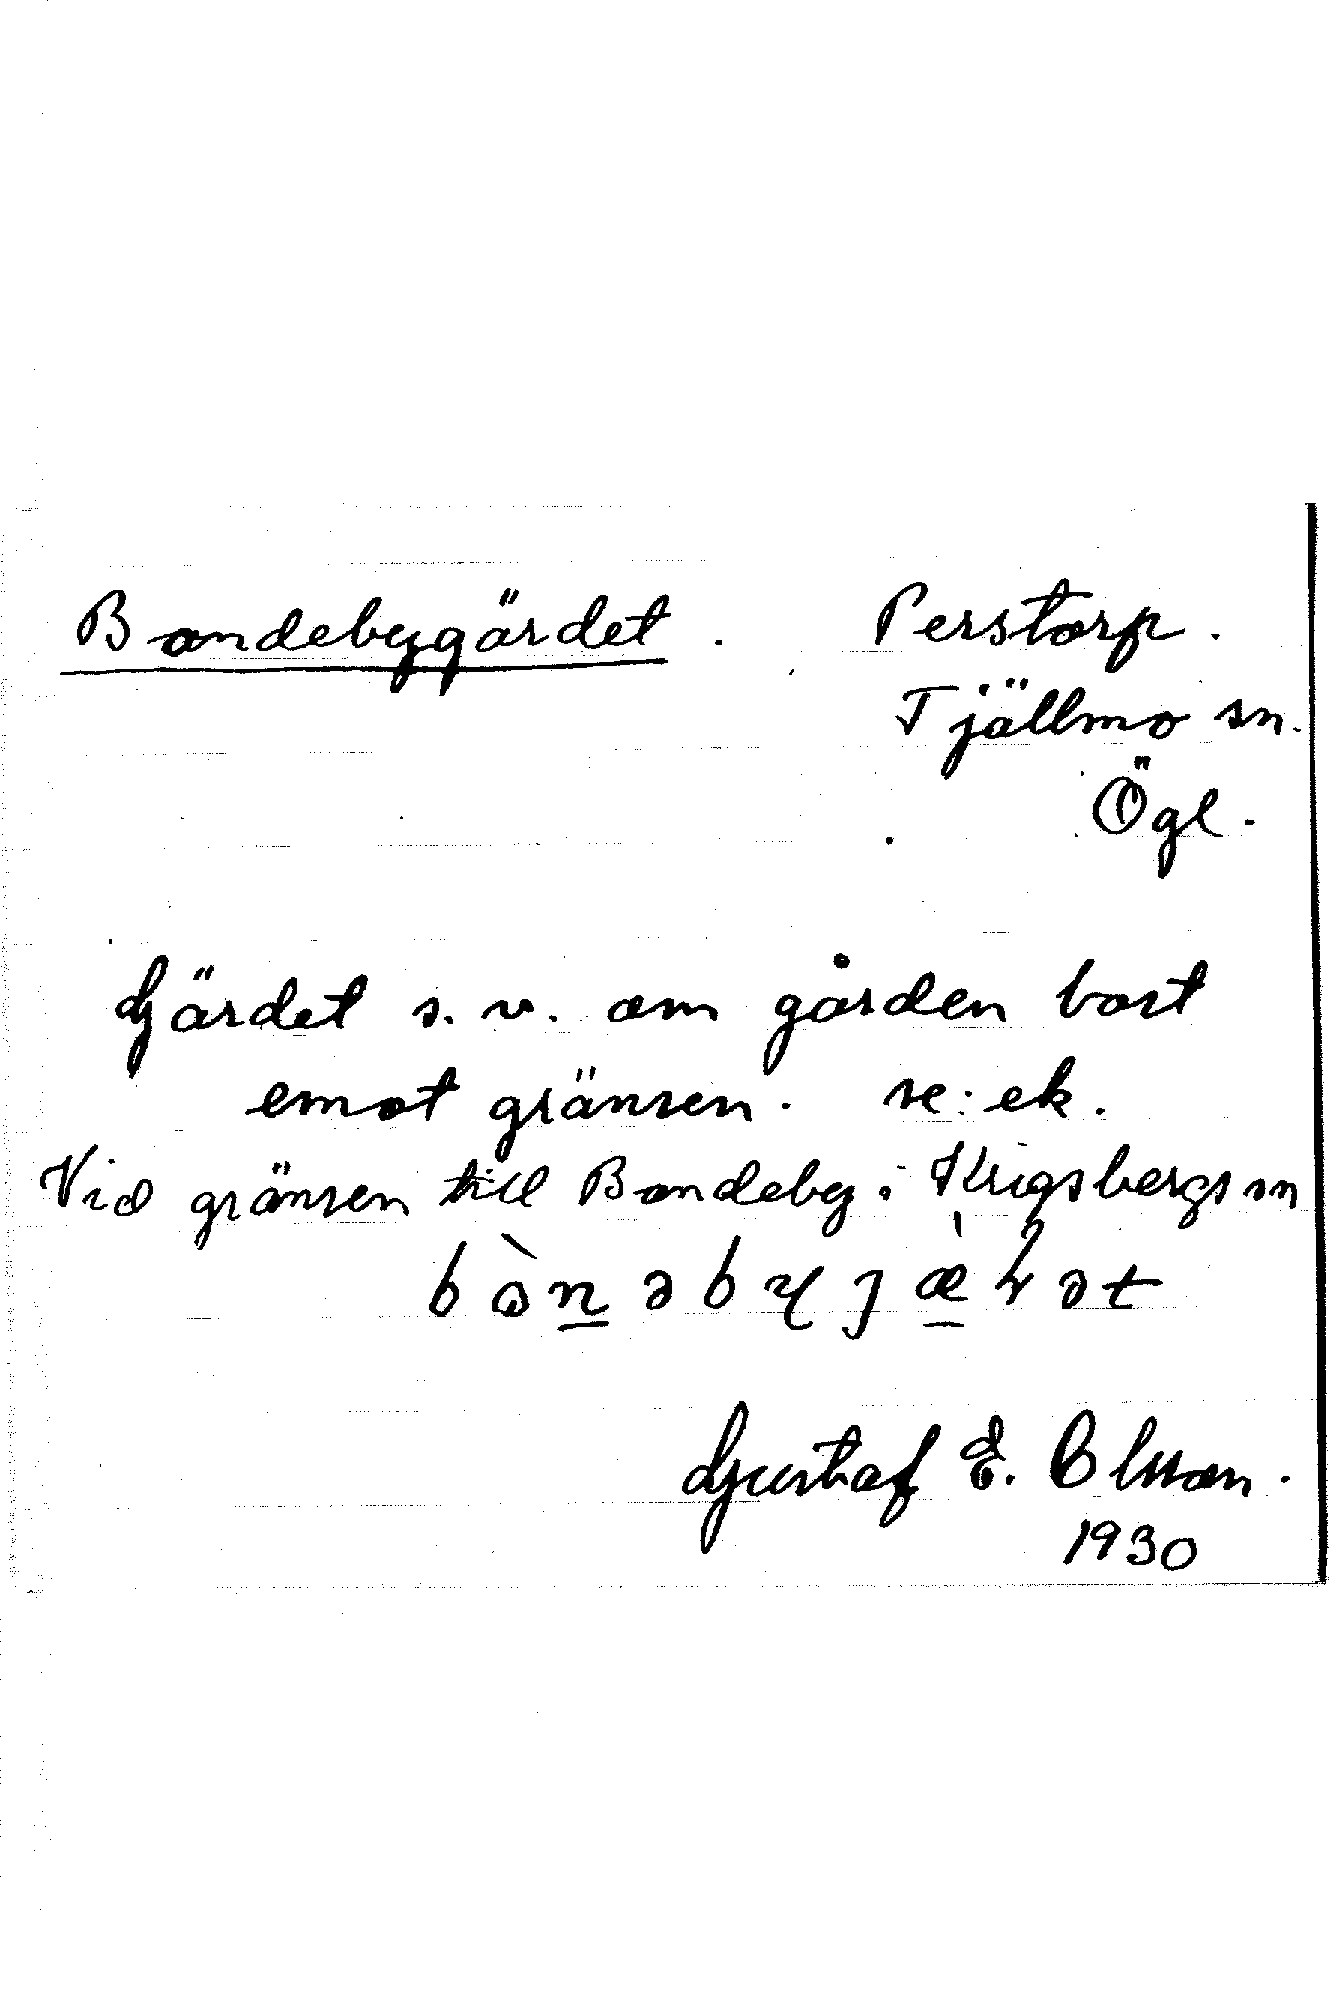 Bondebygärdet. Perstorp.
Tjällmo sn.
Ögl.
Gärdet s. v. om gården bort
emot gränsen. se: ek.
Vid gränsen till Bondeby i Krigsbergs sn
Gustaf E. Olsson.
1930